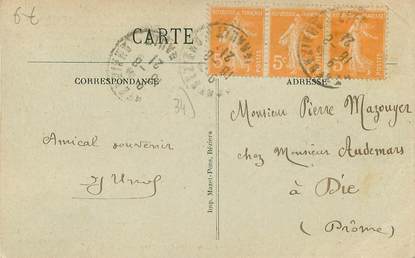 6€
CARTE
CORRESPONDANCE
ADRESSE
34)
5c
5c
Amical souvenir
Imp. Mazel-Pons, Béziers
Monsieur Pierre Mazouyer
chez Monsieur Audemars
à Die
(Drôme)